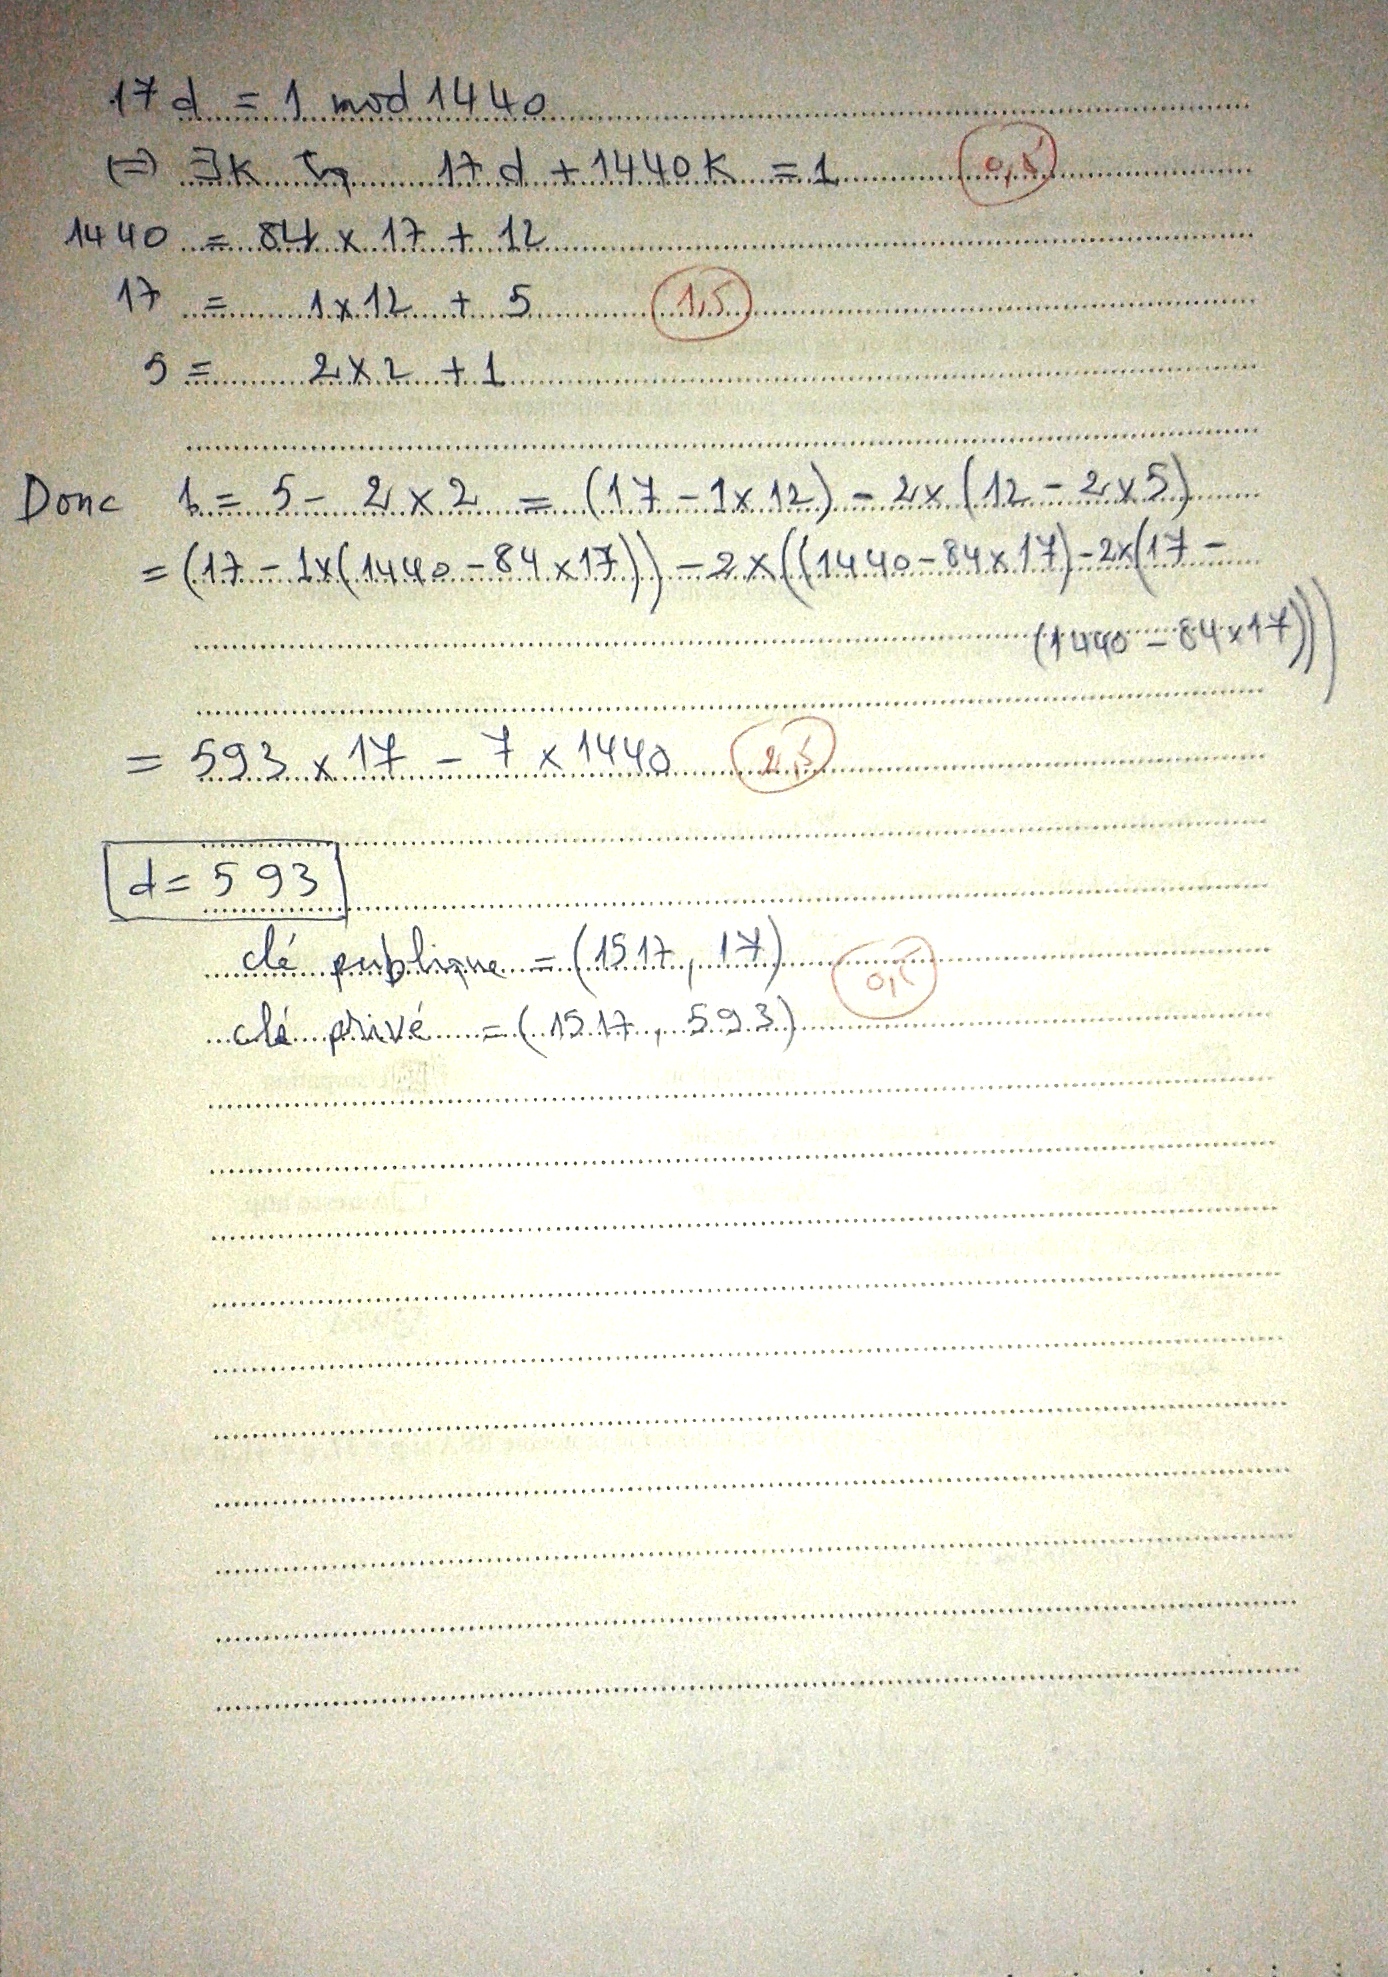 17 d = 1 mod 1440
⟺ ∃ K tq 17 d + 1440 K = 1 0,5
1440 = 84 x 17 + 12
17 = 1 x 12 + 5 1,5
5 = 2 x 2 + 1
Donc 1 = 5 - 2 x 2 = (17 - 1 x 12) - 2 x (12 - 2 x 5)
= (17 - 1x(1440 - 84 x 17)) - 2 x ((1440 - 84 x 17) - 2x(17 -
(1440 - 84 x 17)))
= 593 x 17 - 7 x 1440 2,5
d = 593
clé publique = (1517, 17) 0,5
clé privé = (1517, 593)